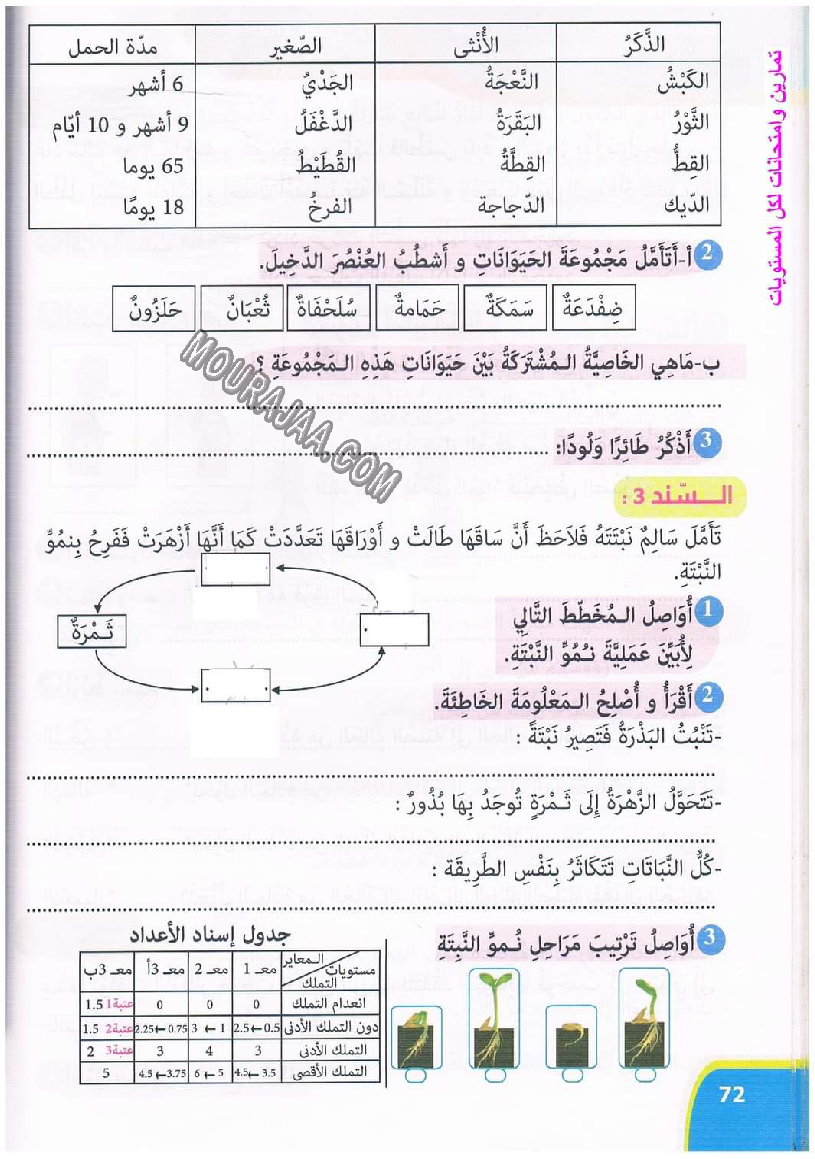 تمارين وامتحانات لكل المستويات
الذَّكَرُ	الأُنْثى	الصّغير	مدّة الحمل
الكَبْشُ	النَّعْجَةُ	الجَدْيُ	6 أشهر
الثَّوْرُ	البَقَرَةُ	الدَّغْفَلُ	9 أشهر و 10 أيّام
القِطُّ	القِطَّةُ	القُطَيْطُ	65 يوما
الدّيك	الدّجاجة	الفرخُ	18 يومًا
2 أ-أَتَأَمَّلُ مَجْمُوعَةَ الحَيَوَانَاتِ و أَشطُبُ العُنْصُرَ الدَّخِيلَ.
ضِفْدَعَةٌ	سَمَكَةٌ	حَمَامةٌ	سُلَحْفَاةٌ	ثُعْبَانٌ	حَلَزُونٌ
ب-مَاهِي الخَاصِيَّةُ الـمُشْتَرَكَةُ بَيْنَ حَيَوَانَاتِ هَذِهِ الـمَجْمُوعَةِ ؟
MOURAJAA.COM
3 أَذْكُرُ طَائِرًا وَلُودًا:
الـــسّند 3 :
تَأَمَّلَ سَالِمٌ نَبْتَتَهُ فَلاَحَظَ أَنَّ سَاقَهَا طَالَتْ و أَوْرَاقَهَا تَعَدَّدَتْ كَمَا أَنَّهَا أَزْهَرَتْ فَفَرِحَ بِنمُوِّ
النَّبْتَةِ.
1 أُوَاصِلُ الـمُخَطّطَ التَّالِي
لِأُبَيِّنَ عَمَلِيَّةَ نـمُوِّ النَّبْتَةِ.
ثَـمْرَةٌ
2 أَقْرَأُ و أُصْلِحُ الـمَعْلُومَةَ الخَاطِئَةَ.
-تَنْبُتُ البَذْرَةُ فَتَصِيرُ نَبْتَةً :
-تَتَحَوَّلُ الزَّهْرَةُ إِلَى ثَـمْرَةٍ تُوجَدُ بِهَا بُذُورٌ :
-كُلُّ النَّبَاتَاتِ تَتَكَاثَرُ بِنَفْسِ الطَّرِيقَة :
3 أُوَاصِلُ تَرْتِيبَ مَرَاحِلِ نُـموِّ النَّبِتَةِ
جدول إسناد الأعداد
الـمعاير	مستويات التملك	معـ 1	معـ 2	معـ 3أ	معـ 3ب
انعدام التملك	0	0	0	عتبة1 1.5
دون التملك الأدنى	0.5←2.5	1 ← 3	0.75 ←2.25	عتبة2 1.5
التملك الأدنى	3	4	3	عتبة3 2
التملك الأقصى	3.5 ←4.5	5 ← 6	3.75← 4.5	5
72